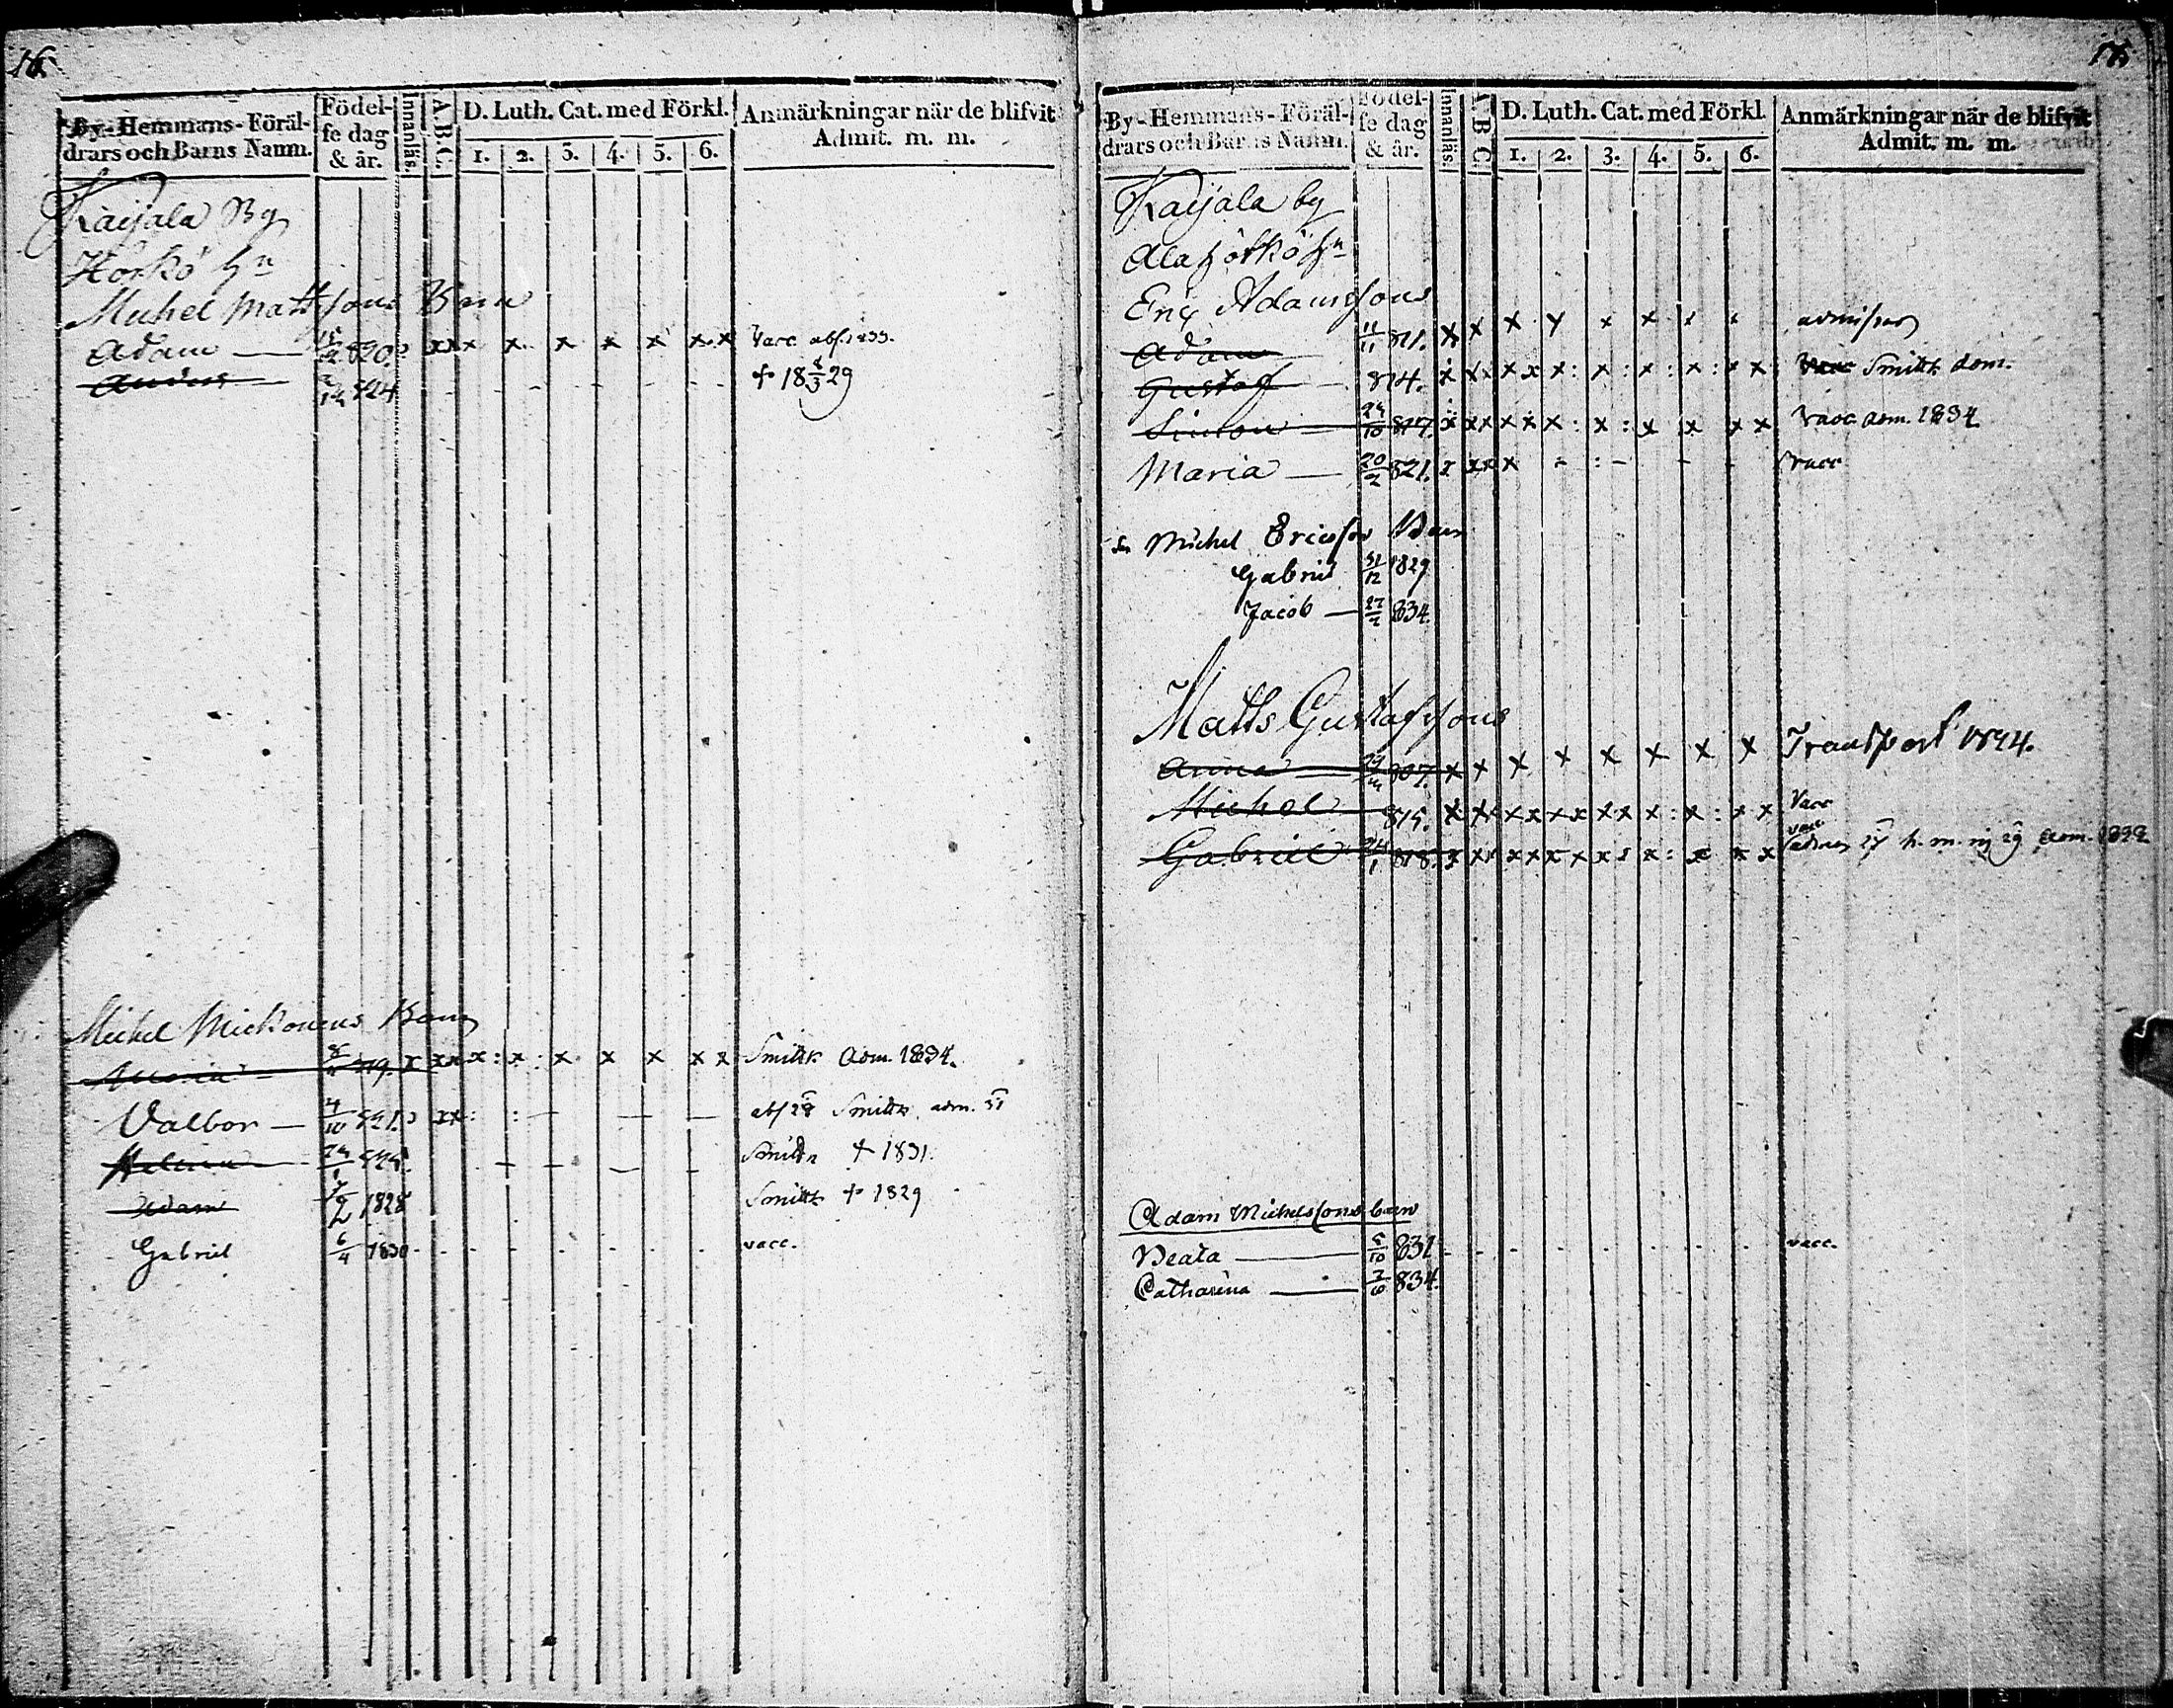 16.
By-Hemmans-Föräl-
drars och Barns Namn.
Födel-
se dag
& år.
Innanläs.
A.B.C.
D. Luth. Cat. med Förkl.
1. 2. 3. 4. 5. 6.
Anmärkningar när de blifvit
Admit. m. m.
Karjala By
Michel Mattssons Barn
Adam — 820. x xx x x x x x x x Vacc abs. 1833.
Anders 824 + 18 29
Michel Mickonens Barn
Maria 819. x xx x : x : x x x x x Smittk Adm. 1834.
Valbor — 4/10 821. xx : : — — — abs 28 Smittk adm.
Helena — Smittk + 1831.
Adam 1828 Smittk + 1829
Gabriel 6/4 1830 vacc.
By-Hemmans-Föräl-
drars och Barns Namn.
Födel-
se dag
& år.
Innanläs.
A B C
D. Luth. Cat. med Förkl.
1. 2. 3. 4. 5. 6.
Anmärkningar när de blifvit
Admit. m. m.
Karjala by
Eric Adamssons
Adam 11/11 811. x x x x x x x x
Gustaf — 814. x xx x x x : x : x : x : x x Smittk adm.
Simon — 24/10 817. x xx x x x : x : x x x x vacc adm. 1834
Maria — 20/2 821. x xx x - : - - - vacc
Michel Ericsson Barn
Gabriel 31/12 1829
Jacob — 27/2 834.
Matts Gustafssons
Anna — 807. x x x x x x x x Transport 1824.
Michel 815. x xx x x x x x x x : x : x x Vacc
Gabriel 24/1 818. x xx x x x x x x x : x x x vacc
Adam Michelssons barn
Beata — 5/10 831 vacc.
Catharina — 834.